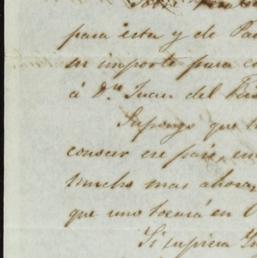 para esta y de Pa
su importe para c
á Dn Juan del Ri
Supongo que
conocer ese pais, en
mucho mas ahora,
que uno tocará en
Si supiera